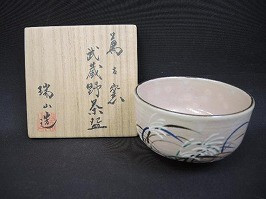 萬古窯
武蔵野茶盌
瑞山造